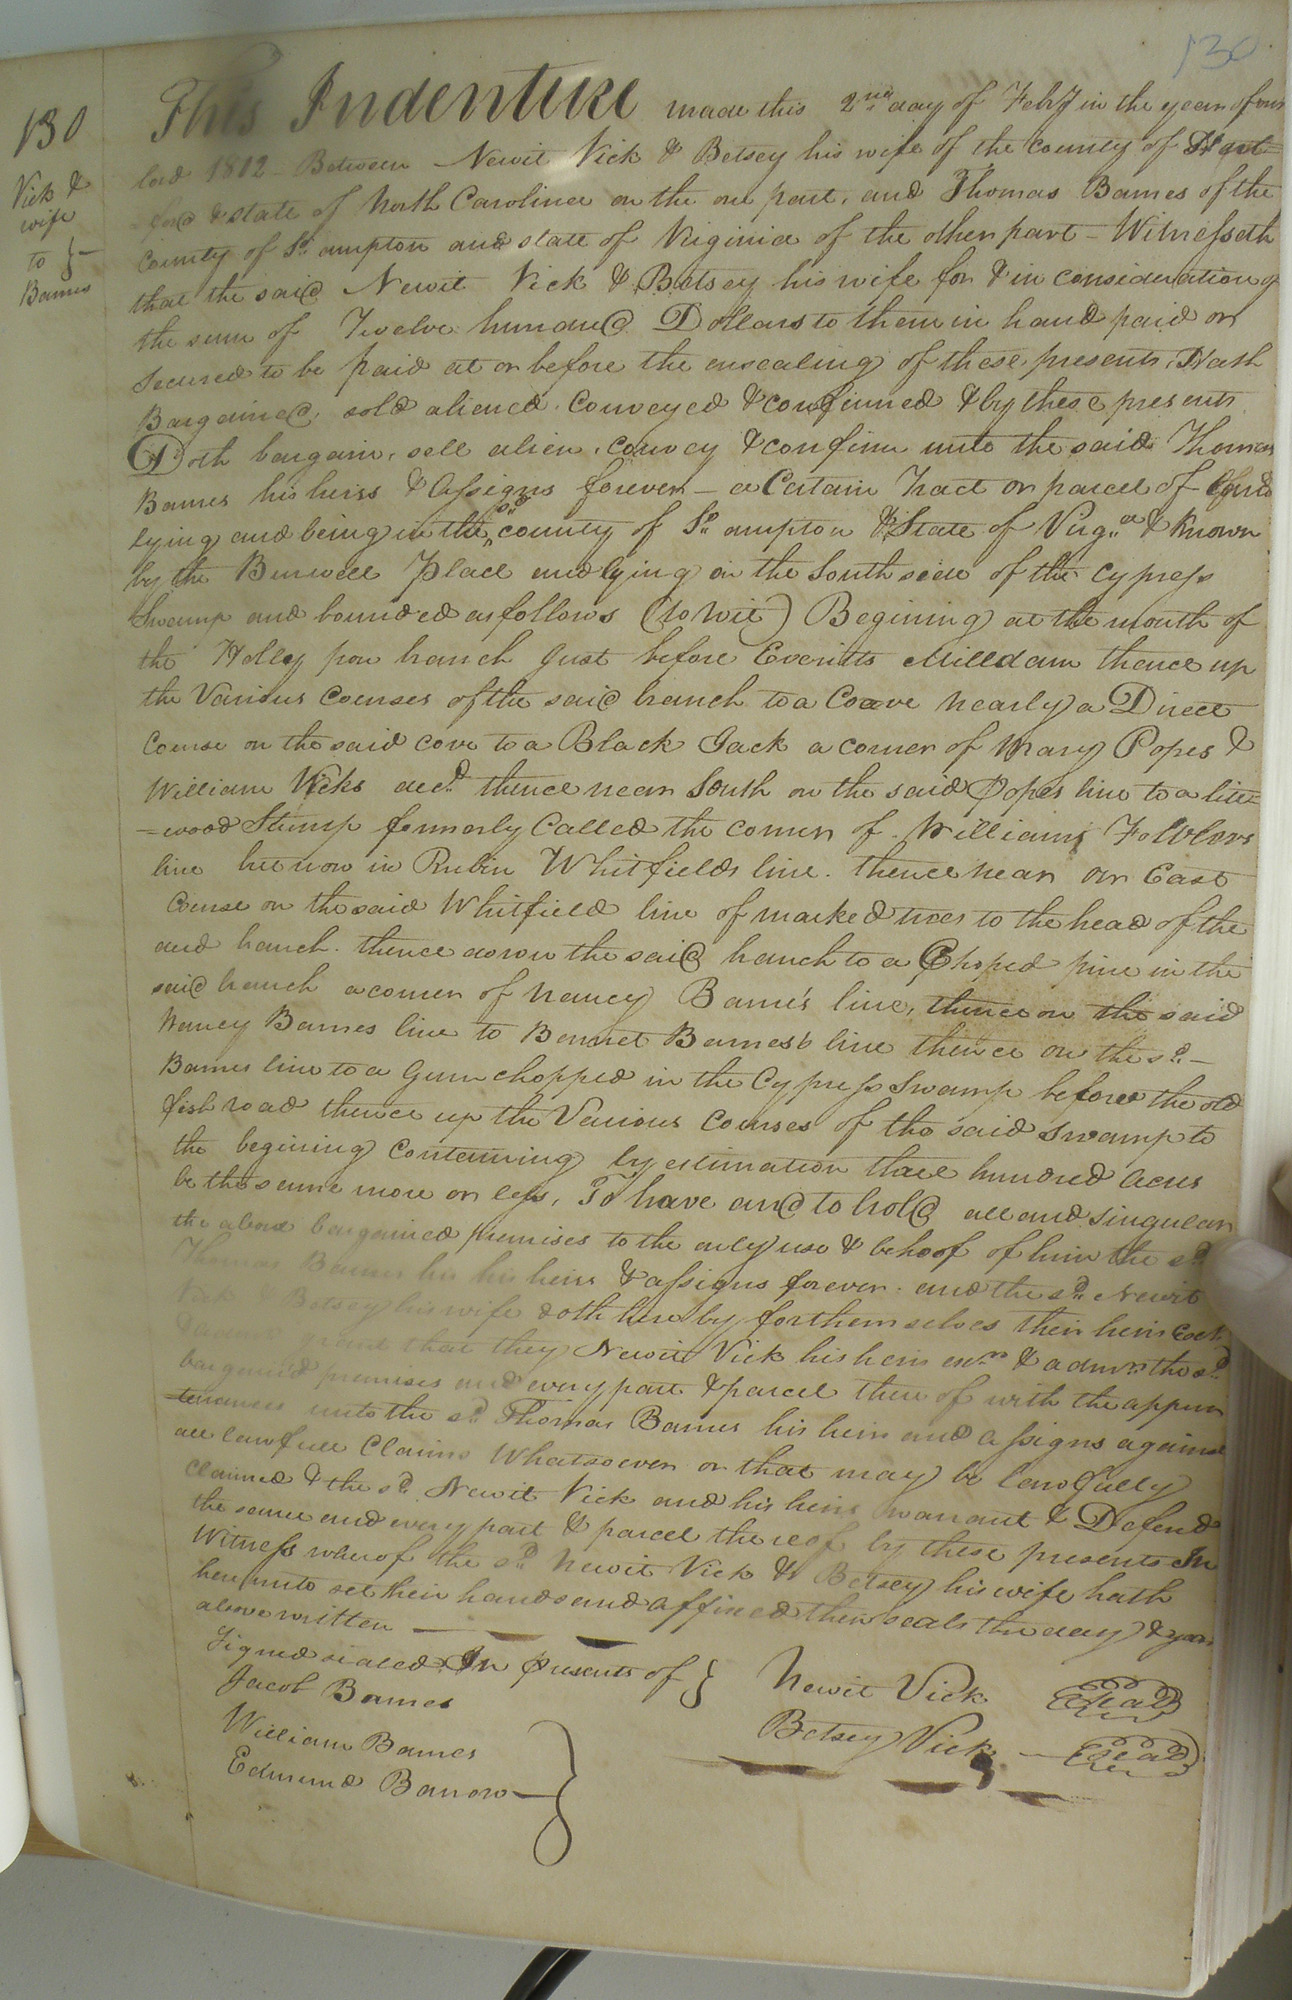 130
130
Vick &
wife
to }-
Barnes
This Indenture made this 2nd day of Feby in the year of our
lord 1812 Between Newit Vick & Betsey his wife of the County of Hert=
=ford & state of North Carolina on the one part, and Thomas Barnes of the
County of So. ampton and state of Virginia of the other part - Witnesseth
that the said Newit Vick & Betsey his wife for & in consideration of
the sum of Twelve hundred Dollars to them in hand paid or
Secured to be paid at or before the ensealing of these presents, Hath
Bargained, sold aliened, Conveyed & confirmed & by these presents
Doth bargain, sell alien, convey & confirm unto the said Thomas
Barnes his heirs & Assigns forever - a Certain Tract or parcel of Land
lying and being in the sd. county of So. ampton & State of Virg.a & Known
by the Burwell Place and lying on the South side of the Cypress
Swamp and bounded as follows (to wit) Begining at the mouth of
the Holly pon branch Just before Everitts Milldam thence up
the Various Courses of the said branch to a Coave nearly a Direct
Course on the said cove to a Black Jack a corner of Mary Popes &
William Vicks decd. thence near South on the said Popes line to a lite=
=wood Stump formerly Called the corner of Williams
line but now in Rubin Whitfields line. thence near an East
Course on the said Whitfield line of marked trees to the head of the
and branch. thence down the said branch to a Choped pine in the
said branch a corner of Nancy Barne's line, thence on the said
Nancy Barnes line to Bennet Barnes's line thence on the sd. -
Barnes line to a Gum chopped in the Cypress Swamp before the old
fish road thence up the Various Courses of the said Swamp to
the begining Containing by estimation three hundred acres
be the same more or less, To have and to hold all and singular
the above bargained premises to the only use & behoof of him the sd.
Thomas Barnes his his heirs & assigns forever. and the sd. Newit
Vick Betsey his wife doth hereby for themselves their heirs
grant that they Newit Vick his heirs exrs & admrs the sd.
bargaind premises and every part & parcel there of with the appur
=tenances unto the sd. Thomas Barnes his heirs and assigns against
all lawfull Claims Whatsoever or that may be lawfully
claimed & the sd. Newit Vick and his heirs warrant & Defend
the same and every part & parcel thereof by these presents In
Witness wherof the sd. Newit Vick & Betsey his wife hath
hereunto set their hands and affixed their seals the day & year
above written
Signed sealed In presents of }
Jacob Barnes
William Barnes
Edmund Barrow
Newit Vick Seal
Betsey Vick Seal